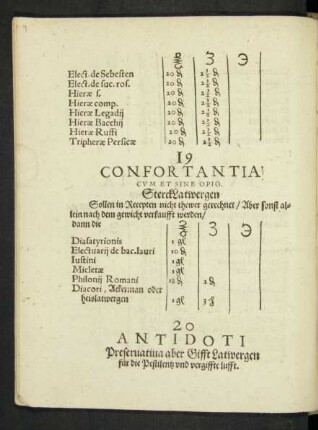 ℥ ʒ ℈
Elect. de Sebesten 20 ₰ 2½ ₰
Elect. de suc. ros. 20 ₰ 2½ ₰
Hieræ s. 20 ₰ 2½ ₰
Hieræ comp. 20 ₰ 2½ ₰
Hieræ Legadij 20 ₰ 2½ ₰
Hieræ Bacchij 20 ₰ 2½ ₰
Hieræ Ruffi 20 ₰ 2½ ₰
Tripheræ Persicæ 20 ₰ 2½ ₰
19
CONFORTANTIA
CVM ET SINE OPIO.
SterckLatwergen
Sollen in Recepten nicht thewer gerechnet / Aber sonst al-
lein nach dem gewicht verkaufft werden /
dann die ℥ ʒ ℈
Diasatyrionis 1 gl
Electuarij de bac. lauri 10 ₰
Iustini 1 gl
Micletæ 1 gl
Philonij Romani 12 ₰ 2 ₰
Diacori, Ackerman oder
heislatwergen 1 gl 3 ₰
20
ANTIDOTI
Preseruatiua aber Gifft Latwergen
für die Pestilentz vnd vergiffte lufft.